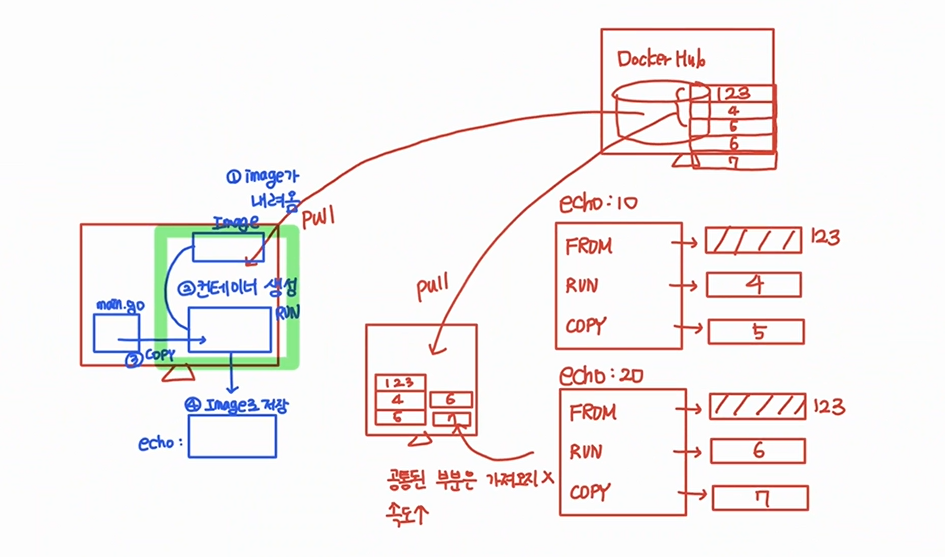 Docker Hub
123
4
5
6
7
① image가
내려옴
Image
pull
② 컨테이너 생성
RUN
main.go
③ COPY
④ Image로 저장
echo:
pull
123
4
5
6
7
공통된 부분은 가져오지 X
속도↑
echo:10
FROM
123
RUN
4
COPY
5
echo:20
FROM
123
RUN
6
COPY
7